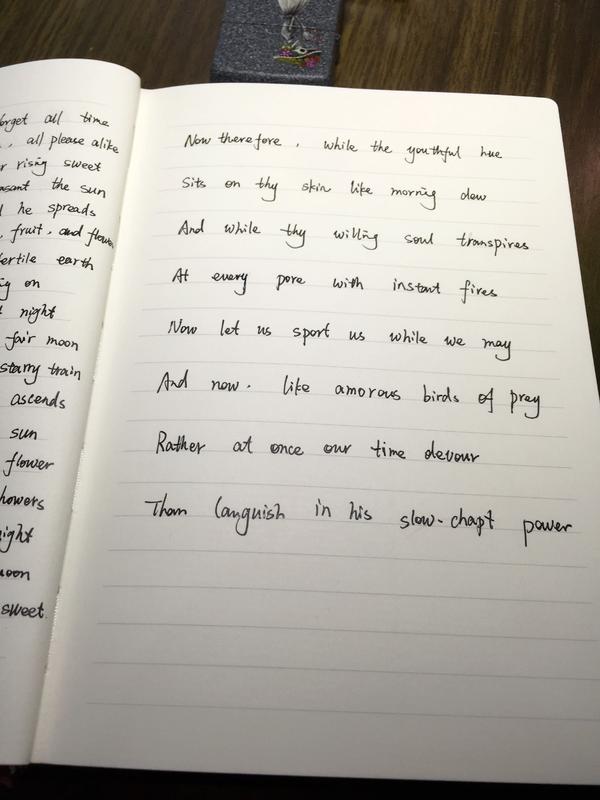 forget all time
all please alike
rising sweet
the sun
he spreads
fruit, and flower
fertile earth
on
night
fair moon
starry train
ascends
sun
flower
showers
night
moon
sweet.
Now therefore, while the youthful hue
Sits on thy skin like morning dew
And while thy willing soul transpires
At every pore with instant fires
Now let us sport us while we may
And now. like amorous birds of prey
Rather at once our time devour
Than languish in his slow-chapt power